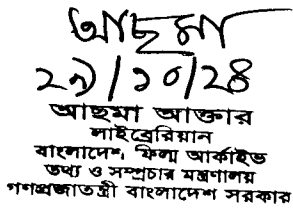 আছমা
২৯/১০/২৪
আছমা আক্তার
লাইব্রেরিয়ান
বাংলাদেশ ফিল্ম আর্কাইভ
তথ্য ও সম্প্রচার মন্ত্রণালয়
গণপ্রজাতন্ত্রী বাংলাদেশ সরকার